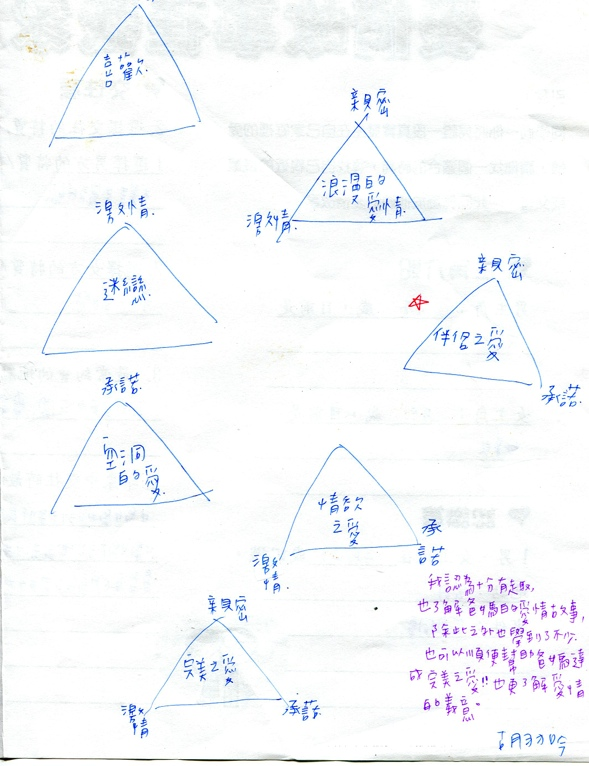 喜歡
親密
浪漫的
愛情
激情
激情
迷戀
親密
伴侶之愛
承諾
承諾
空洞
的愛
情欲
之愛
激
情
承
諾
親密
完美之愛
激
情
承諾
我認為十分有趣,
也了解爸媽的愛情故事,
除此之外也學到了不少
也可以順便幫助爸媽達
成完美之愛!!也更了解愛情
的義意。